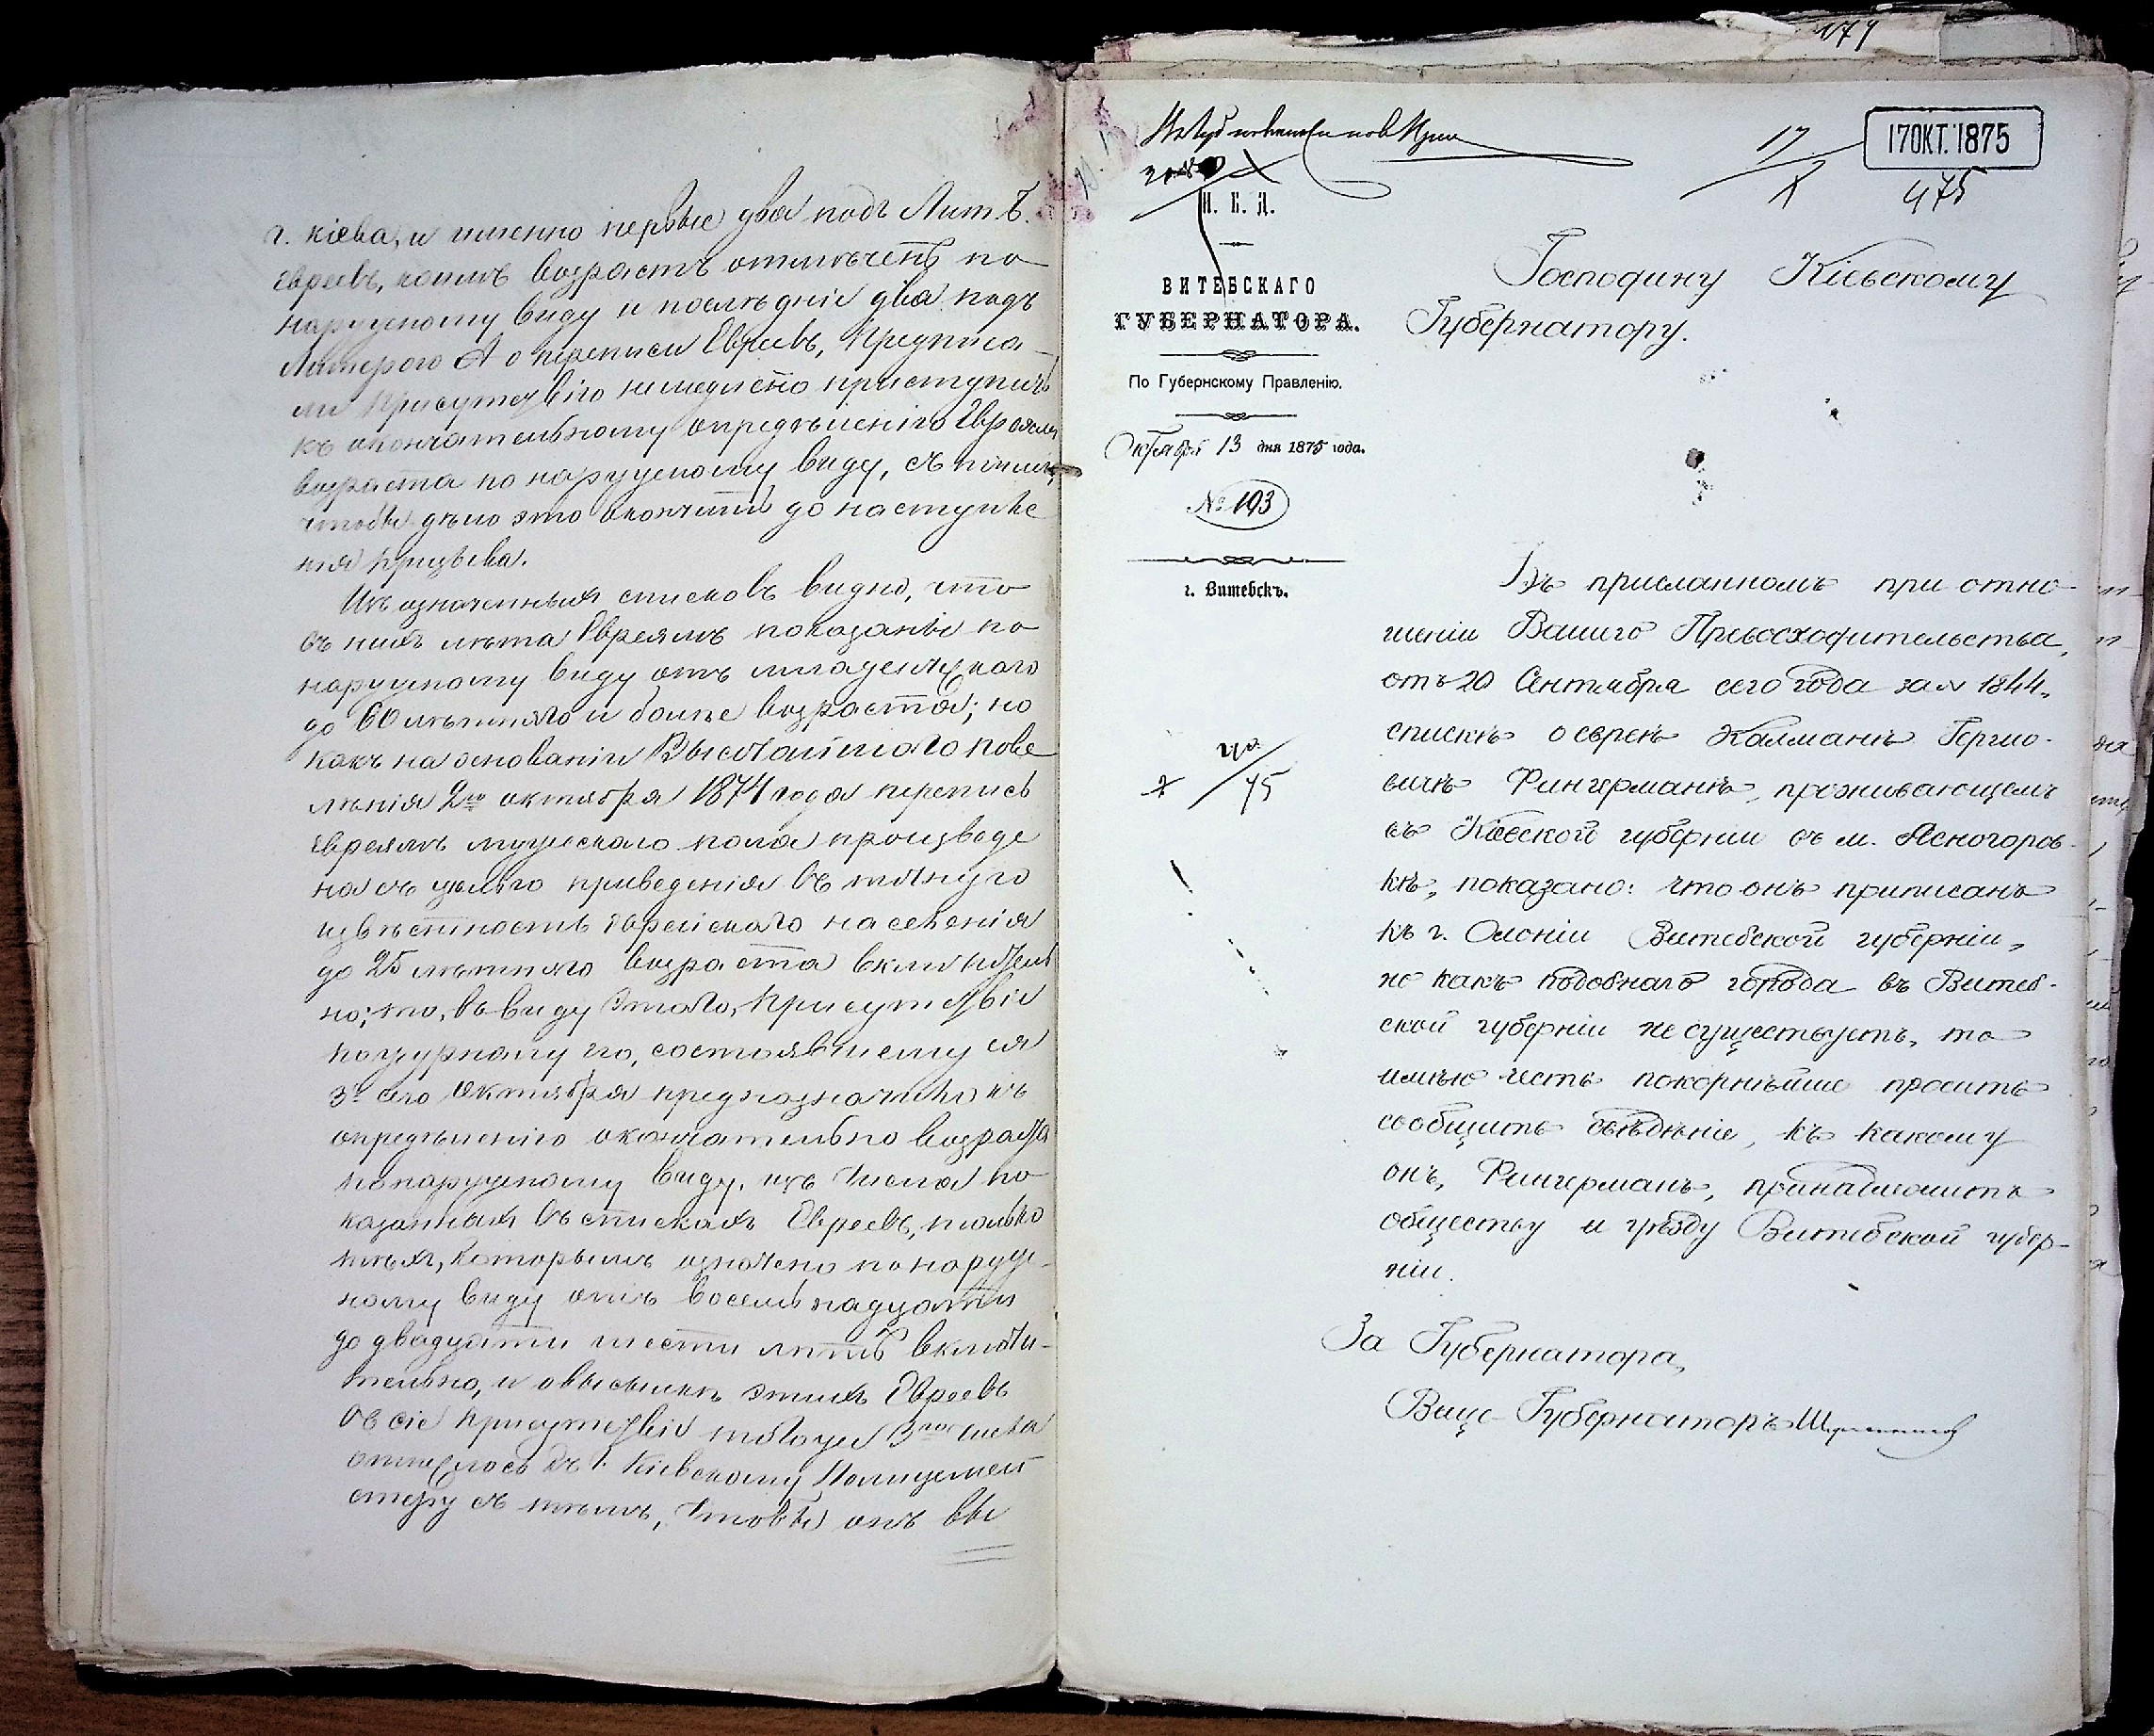 г. Кіева, и именно первые два подъ Лит. Б.
Евреевъ, коимъ возрастъ отмѣченъ по
наружному виду и послѣдніе два подъ
Литерою А о переписи Евреевъ, предписа-
ли Присутствію немедленно приступить
къ окончательному опредѣленію Евреямъ
возраста по наружному виду, съ тѣмъ,
чтобы дѣло это окончить до наступле
нія призыва.
Изъ означенныхъ списковъ видно, что
въ нихъ лѣта Евреямъ показаны по
наружному виду отъ младенческаго
до 60 лѣтняго и болѣе возраста; но
какъ на основаніи Высочайшаго пове
лѣнія 2го октября 1874 года перепись
Евреямъ мужескаго пола произведе
на съ цѣлью приведенія въ точную
извѣстность Еврейскаго населенія
до 25 лѣтняго возраста включитель
но; то, въ виду этого, Присутствіе
по журналу его, состоявшемуся
3го сего октября предназначило къ
опредѣленію окончательно возраста
по наружному виду, изъ числа по
казанныхъ въ спискахъ Евреевъ, только
тѣхъ, которымъ означено по наруж-
ному виду отъ восемнадцати
до двадцати шести лѣтъ включи-
тельно, и о высылкѣ этихъ Евреевъ
въ сіе Присутствіе того же 3го числа
отнеслось къ г. Кіевскому Полицемей
стеру съ тѣмъ, чтобы онъ вы
174
17 ОКТ. 1875
17
X
475
М. В. Д.
ВИТЕБСКАГО
ГУБЕРНАТОРА.
По Губернскому Правленію.
Октября 13 дня 1875 года.
№ 193
г. Витебскъ.
75
Господину Кіевскому
Губернатору.
Въ присланномъ при отно-
шеніи Вашего Превосходительства,
отъ 20 Сентября сего года за № 1844,
спискѣ о евреѣ Калманѣ Гершо-
вичѣ Фингерманѣ, проживающемъ
въ Кіевской губерніи въ м. Ясногород-
кѣ, показано: что онъ приписанъ
къ г. Слоніи Витебской губерніи,
но какъ подобнаго города въ Витеб-
ской губерніи не существуетъ, то
имѣю честь покорнѣйше просить
сообщить свѣдѣніе, къ какому
онъ, Фингерманъ, принадлежитъ
обществу и уѣзду Витебской губер-
ніи.
За Губернатора,
Вице-Губернаторъ